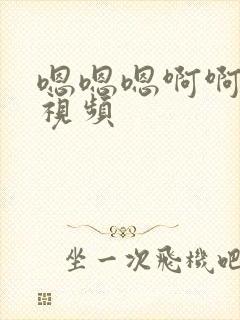 嗯嗯嗯啊啊
视频
坐一次飛機吧